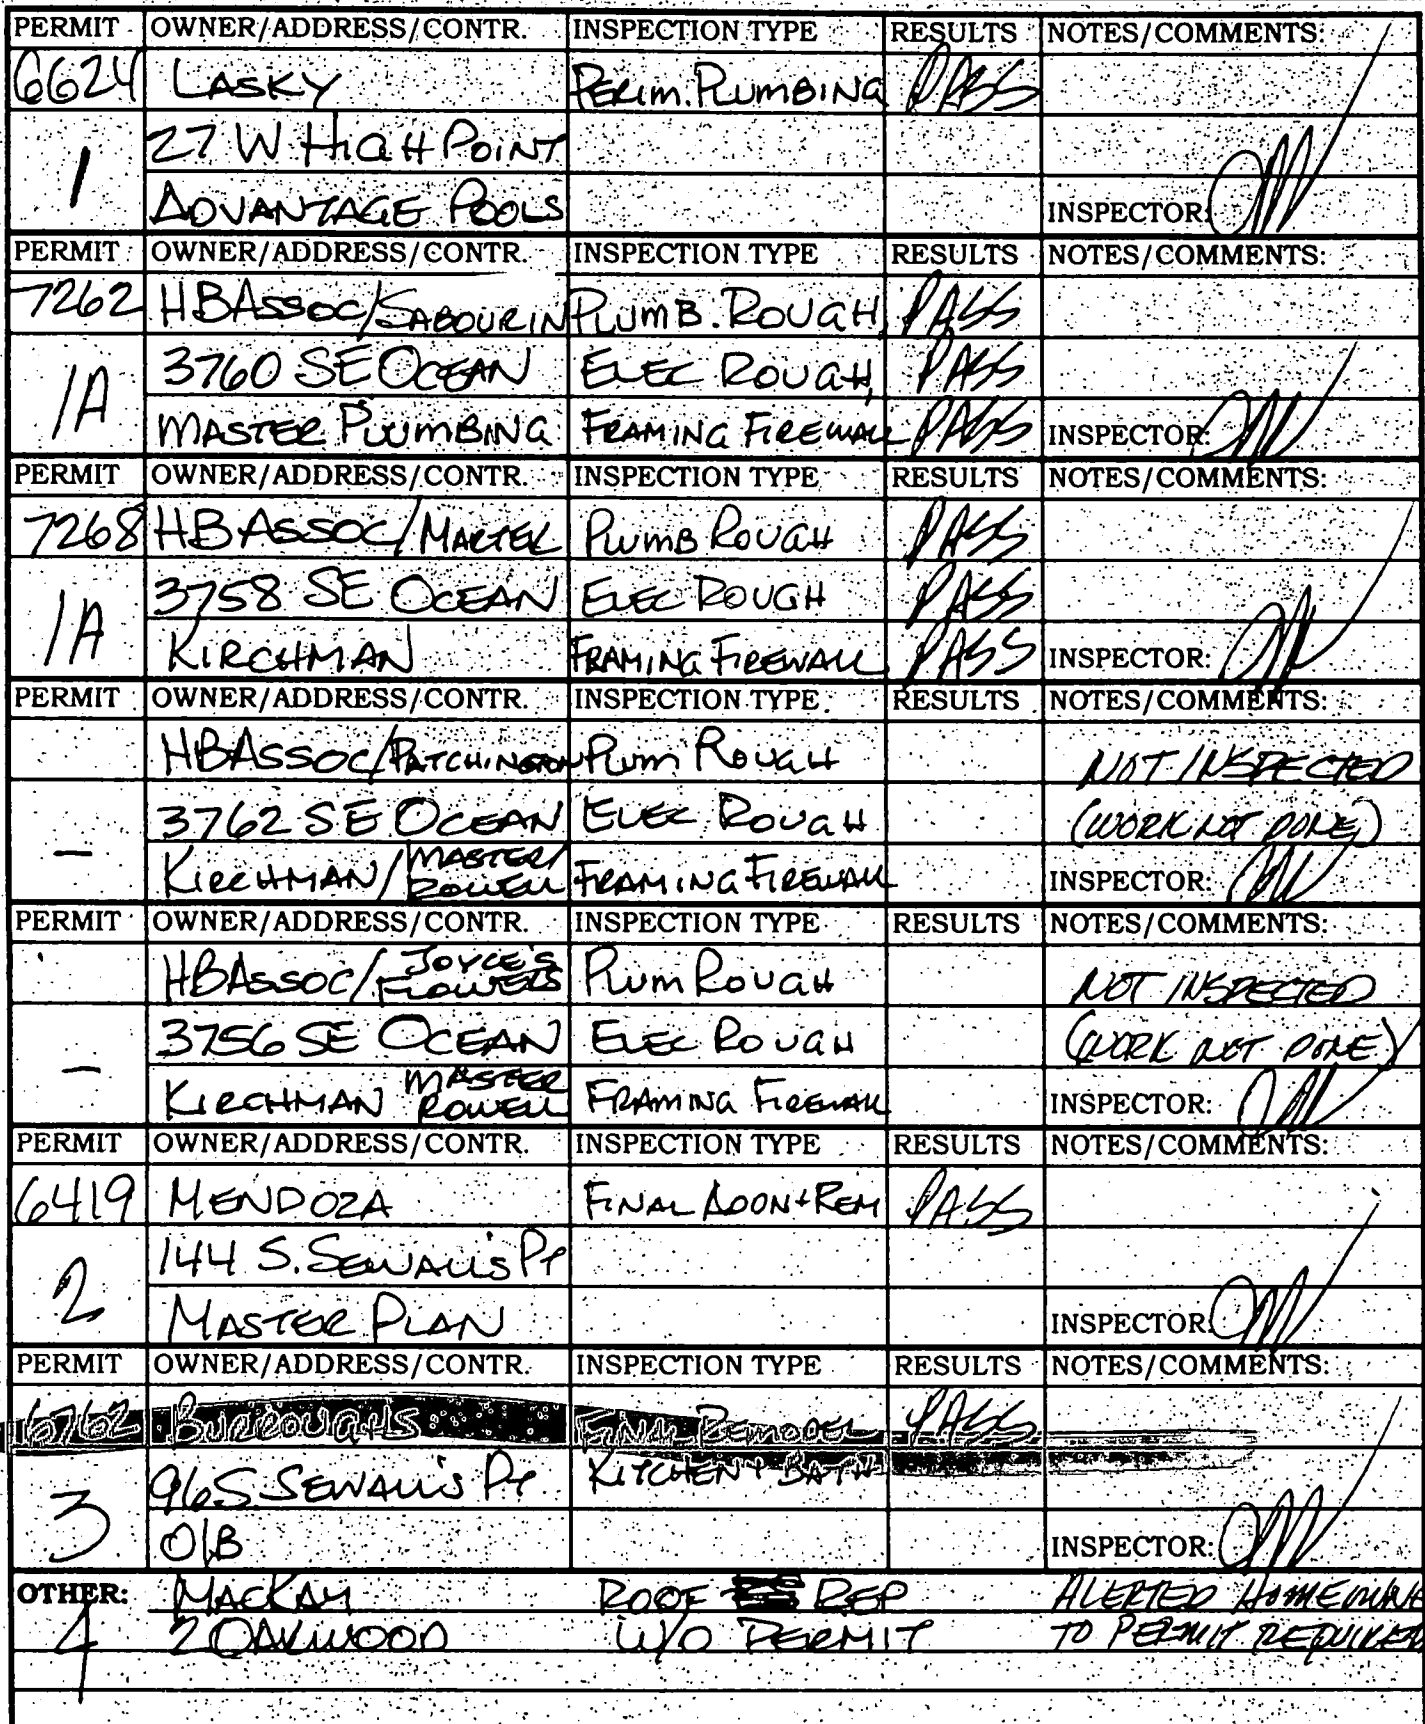 PERMIT OWNER/ADDRESS/CONTR. INSPECTION TYPE RESULTS NOTES/COMMENTS:
6624 LASKY PERIM. PLUMBING PASS
1 27 W HIGH POINT
ADVANTAGE POOLS INSPECTOR:
PERMIT OWNER/ADDRESS/CONTR. INSPECTION TYPE RESULTS NOTES/COMMENTS:
7262 HBASSOC/SABOURIN PLUMB. ROUGH PASS
1A 3760 SE OCEAN ELEC ROUGH PASS
MASTER PLUMBING FRAMING FIREWALL PASS INSPECTOR:
PERMIT OWNER/ADDRESS/CONTR. INSPECTION TYPE RESULTS NOTES/COMMENTS:
7268 HB ASSOC/MARTEL PLUMB ROUGH PASS
1A 3758 SE OCEAN ELEC ROUGH PASS
KIRCHMAN FRAMING FIREWALL PASS INSPECTOR:
PERMIT OWNER/ADDRESS/CONTR. INSPECTION TYPE RESULTS NOTES/COMMENTS:
HBASSOC/PATCHINGTON PLUM ROUGH NOT INSPECTED
— 3762 SE OCEAN ELEC ROUGH (WORK NOT DONE)
KIRCHMAN/MASTER/ROWELL FRAMING FIREWALL INSPECTOR:
PERMIT OWNER/ADDRESS/CONTR. INSPECTION TYPE RESULTS NOTES/COMMENTS:
HBASSOC/JOYCE'S FLOWERS PLUM ROUGH NOT INSPECTED
— 3756 SE OCEAN ELEC ROUGH (WORK NOT DONE)
KIRCHMAN MASTER ROWELL FRAMING FIREWALL INSPECTOR:
PERMIT OWNER/ADDRESS/CONTR. INSPECTION TYPE RESULTS NOTES/COMMENTS:
6419 MENDOZA FINAL ADDN+REM PASS
2 144 S. SEWALL'S PT
MASTER PLAN INSPECTOR:
PERMIT OWNER/ADDRESS/CONTR. INSPECTION TYPE RESULTS NOTES/COMMENTS:
6762 BURROUGHS FINAL REMODEL PASS
3 96 S. SEWALL'S PT KITCHEN + BATH
O/B INSPECTOR:
OTHER: MACKAY ROOF REP ALERTED HOMEOWNE
4 2 OAKWOOD W/O PERMIT TO PERMIT REQUIREM